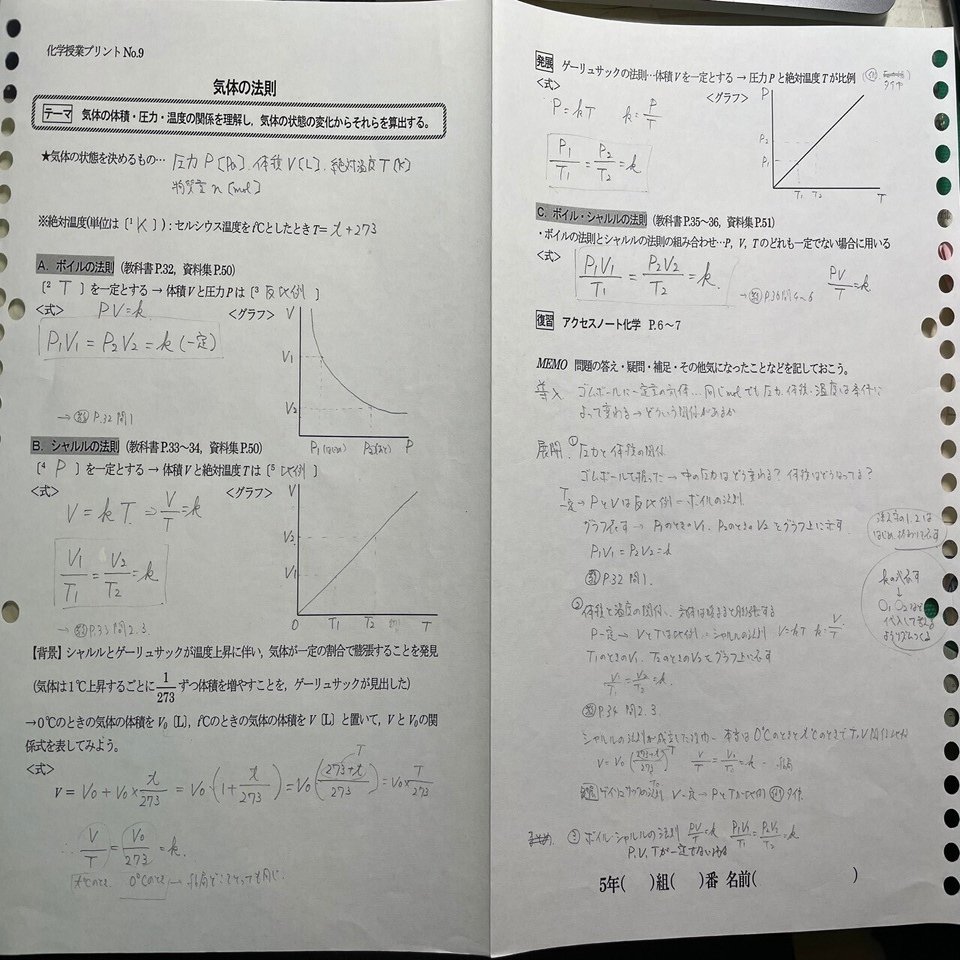 化学授業プリント No.9
気体の法則
テーマ 気体の体積・圧力・温度の関係を理解し，気体の状態の変化からそれらを算出する。
★気体の状態を決めるもの… 圧力 P [Pa]、体積 V [L]、絶対温度 T [K]
物質量 n [mol]
※絶対温度(単位は〔¹ K 〕)：セルシウス温度を t℃としたとき T= t+273
A. ボイルの法則 (教科書 P.32, 資料集 P.50)
〔² T 〕を一定とする → 体積 V と圧力 P は〔³ 反比例 〕
〈式〉 PV=k
〈グラフ〉
P₁V₁ = P₂V₂ = k (一定)
V
V₁
V₂
P₁(はじめ) P₂(あと) P
→ 教 P.32 問1
B. シャルルの法則 (教科書 P.33～34, 資料集 P.50)
〔⁴ P 〕を一定とする → 体積 V と絶対温度 T は〔⁵ 比例 〕
〈式〉
〈グラフ〉
V = kT ⇒ V/T = k
V₁/T₁ = V₂/T₂ = k
V
V₂
V₁
0 T₁ T₂ T
→ 教 P.33 問2.3.
【背景】シャルルとゲーリュサックが温度上昇に伴い，気体が一定の割合で膨張することを発見
(気体は 1℃上昇するごとに 1/273 ずつ体積を増やすことを，ゲーリュサックが見出した)
→0℃のときの気体の体積を V₀〔L〕, t℃のときの気体の体積を V〔L〕と置いて，V と V₀ の関
係式を表してみよう。
〈式〉
T
V = V₀ + V₀ × t/273 = V₀(1 + t/273) = V₀((273+t)/273) = V₀ × T/273
∴ V/T = V₀/273 = k.
t℃のとき 0℃のとき
発展 ゲーリュサックの法則…体積 V を一定とする → 圧力 P と絶対温度 T が比例
タイヤ
〈式〉
〈グラフ〉
P = kT k = P/T
P₁/T₁ = P₂/T₂ = k
P
P₂
P₁
T₁ T₂ T
C. ボイル・シャルルの法則 (教科書 P.35～36, 資料集 P.51)
・ボイルの法則とシャルルの法則の組み合わせ…P, V, T のどれも一定でない場合に用いる
〈式〉
P₁V₁/T₁ = P₂V₂/T₂ = k.
PV/T = k
→ 教 P.36 問4～6
復習 アクセスノート化学 P.6～7
MEMO 問題の答え・疑問・補足・その他気になったことなどを記しておこう。
導入 ゴムボールに一定量の気体…同じmolでも圧力、体積、温度は条件に
よって変わる → どういう関係があるか
展開 ① 圧力と体積の関係
ゴムボールを握った → 中の圧力はどう変わる？ 体積はどうなってる？
T一定 → PとVは反比例 … ボイルの法則
グラフ示す → P₁のときのV₁、P₂のときのV₂ とグラフ上に示す
P₁V₁ = P₂V₂ = k
教 P.32 問1.
添え字の1、2は
はじめ、終わりを示す
kの式示す
↓
代入して考える
② 体積と温度の関係
P一定 → VとTは比例 … シャルルの法則 V=kT k=V/T
T₁のときのV₁、T₂のときのV₂とグラフ上に示す
V₁/T₁ = V₂/T₂ = k.
教 P.34 問2.3.
V = V₀((273+t)/273)
V一定 → PとTが比例
③ ボイル・シャルルの法則 PV/T = k P₁V₁/T₁ = P₂V₂/T₂ = k
P.V.Tが一定でない
5年( )組( )番 名前( )